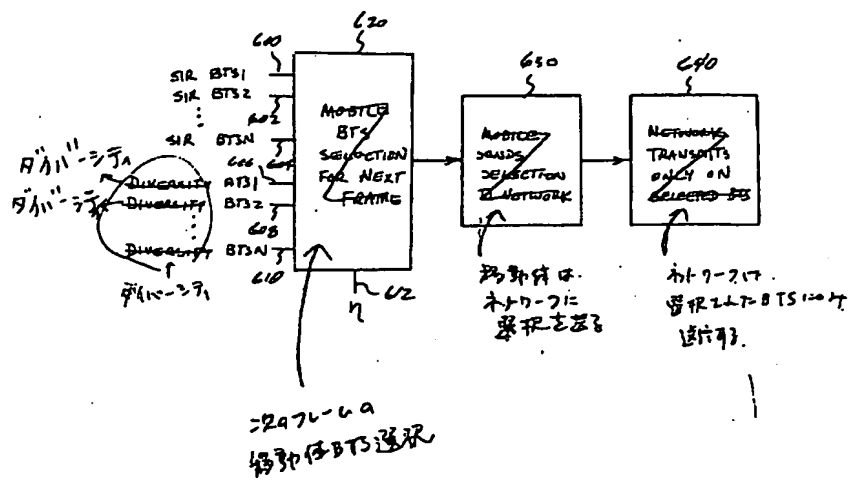 620
600
SIR BTS1
SIR BTS2
602
SIR BTSN
604
606
ダイバーシティ
DIVERSITY BTS1
ダイバーシティ
DIVERSITY BTS2
608
DIVERSITY BTSN
610
ダイバーシティ
MOBILE
BTS
SELECTION
FOR NEXT
FRAME
η
62
630
MOBILE
SENDS
SELECTION
TO NETWORK
640
NETWORK
TRANSMITS
ONLY ON
SELECTED BTS
移動体は
ネットワークに
選択を送る
ネットワークは
選択されたBTSにのみ
送信する
次のフレームの
移動体BTS選択